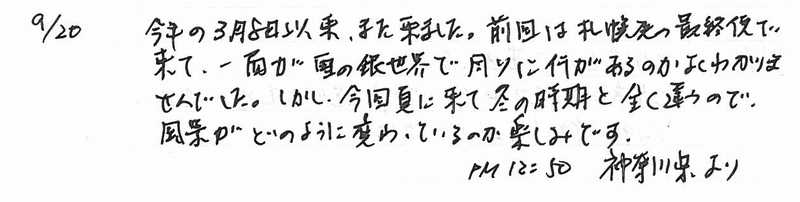 9/20 今年の3月8日以来、また来ました。前回は札幌発の最終便で
来て、一面が雪の銀世界で周りに何があるのかよくわかりま
せんでした。しかし、今回夏に来て冬の時期と全く違うので、
風景がどのように変わっているのか楽しみです。
PM 12:50 神奈川県より